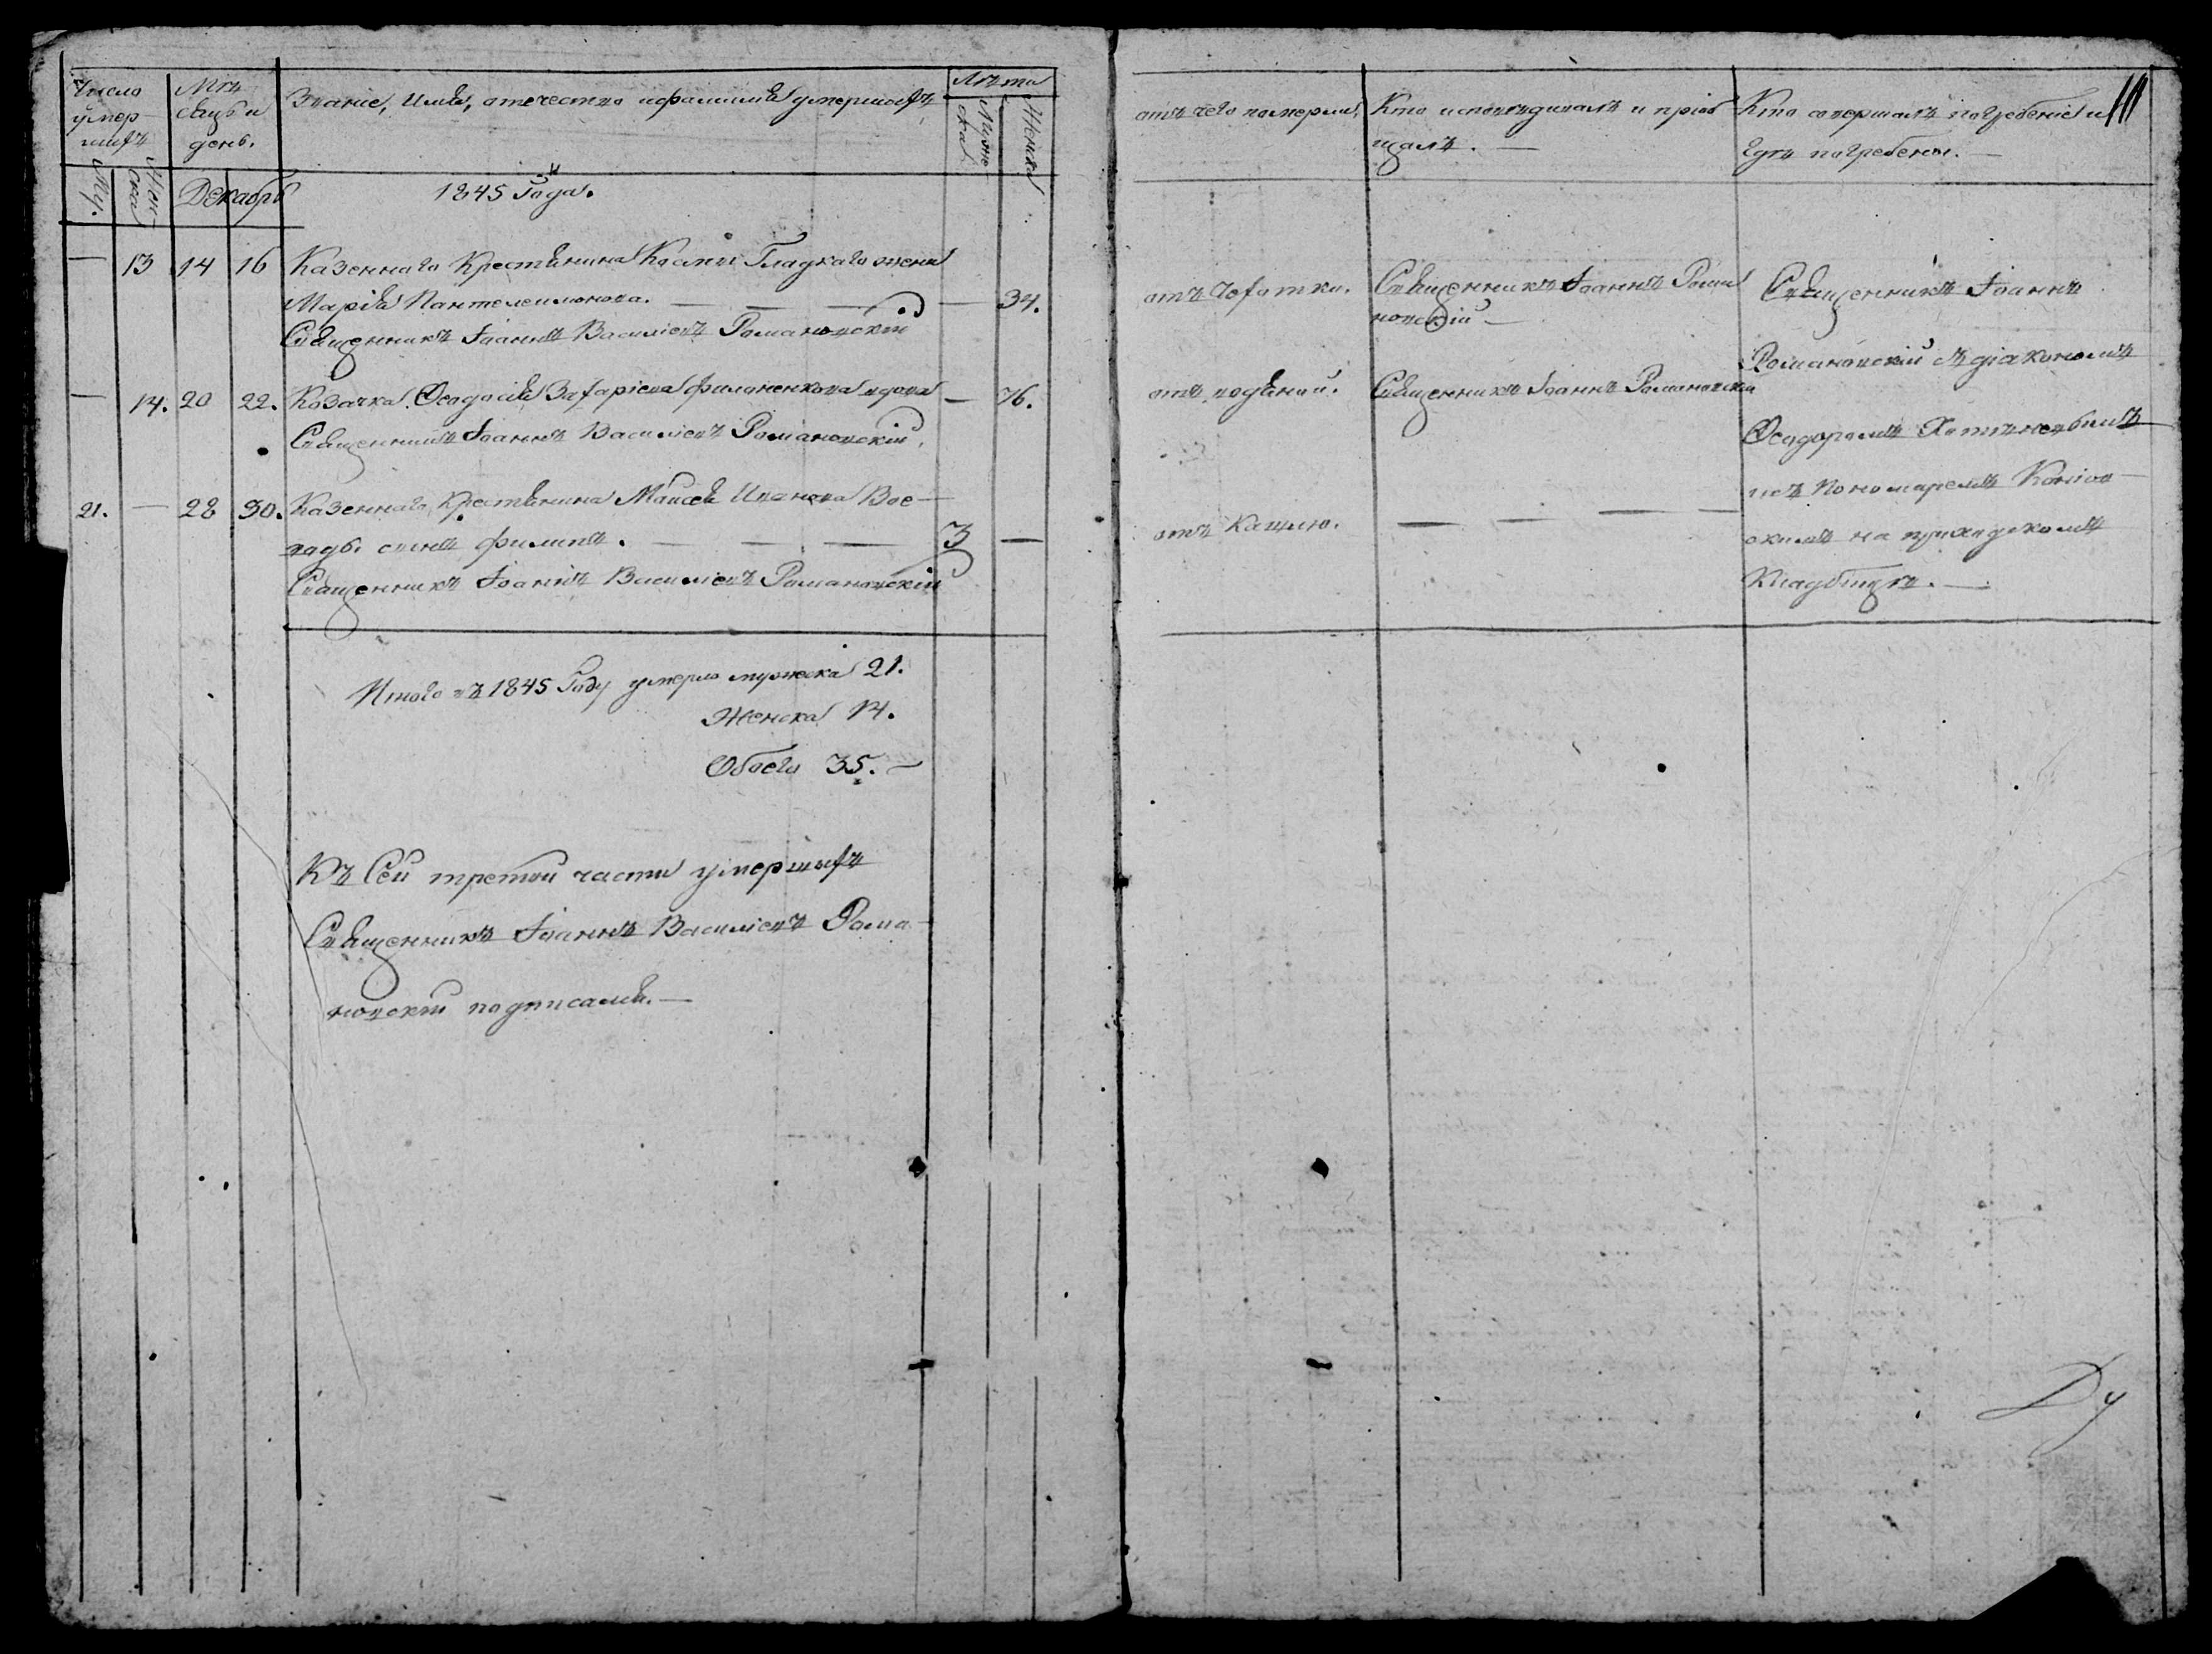 Число умер-
шихъ
Мѣ-
сяцъ и
день.
Званіе, Имя, отечество и фамилія умершихъ
Лѣта
Муже
ска.
Женска
Му.
Жен
ска
Декабрь
1845 Года.
— 13 14 16 Казеннаго Крестянина Космы Гладкаго жена
Марія Пантелеимонова. — — — — 34.
Священникъ Іоаннъ Василіевъ Романовскій
— 14. 20 22. Козачка Ѳеодосія Захаріева Филоненкова вдова — 76.
Священникъ Іоаннъ Василіевъ Романовскій.
21. — 28 30. Казеннаго Крестянина Моисея Иванова
сынъ Филипъ. — — — 3 —
Священникъ Іоаннъ Василіевъ Романовскій
Итого въ 1845 Году умерло мужеска 21.
Женска 14.
Обоего 35. —
Къ Сей третой части умершихъ
Священникъ Іоаннъ Василіевъ Рома-
новскій подписался. —
отъ чего померли,
Кто исповѣдивалъ и пріоб
щалъ. —
Кто совершалъ погребеніе и
гдѣ погребены. —
отъ Чохотки.
Священникъ Іоаннъ Рома
новскій —
отъ водяной.
Священникъ Іоаннъ Романовскій
отъ Кашлю. — — — —
Священникъ Іоаннъ
Романовскій съ діакономъ
Ѳеодоромъ
на приходскомъ
Кладбищѣ. —